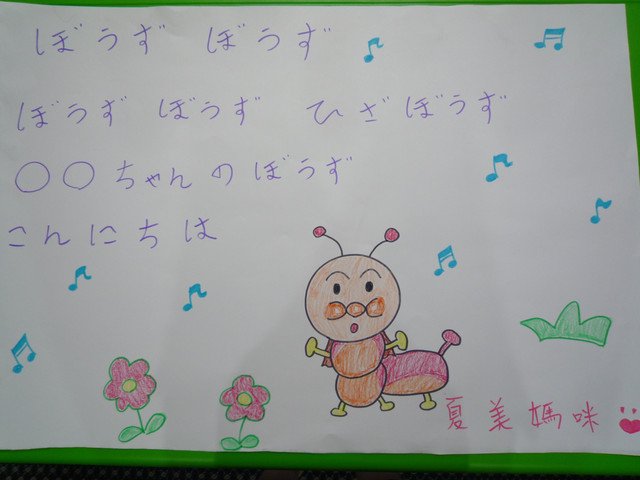 ぼうず ぼうず
ぼうず ぼうず ひざぼうず
○○ちゃんのぼうず
こんにちは
夏美媽咪